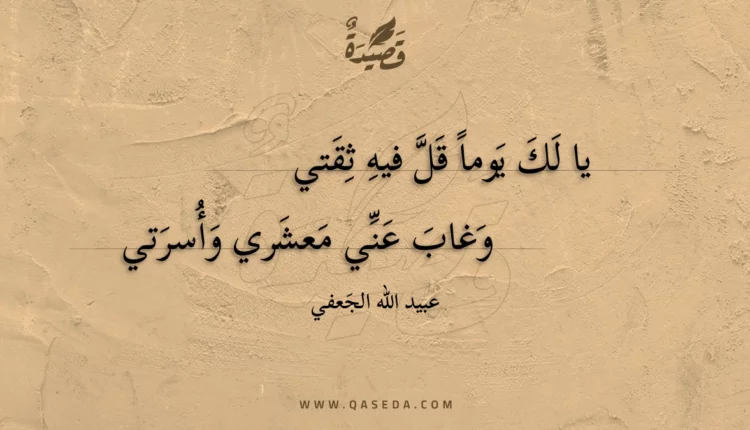 قَصِيدَةٌ
يا لَكَ يَوماً قَلَّ فيهِ ثِقَتي
وَغابَ عَنِّي مَعشَري وَأُسرَتي
عبيد الله الجَعفي
WWW.QASEDA.COM